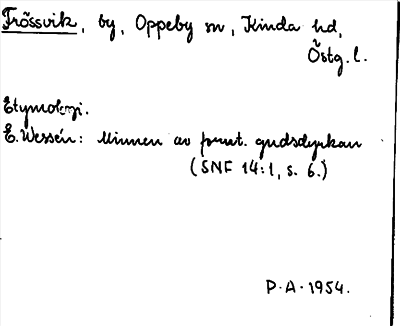 Frössvik, by, Oppeby sn, Kinda hd,
Östg. l.
Etymologi.
E. Wessén: Minnen av fornt. gudsdyrkan
(SNF 14:1, s. 6.)
P.A. 1954.